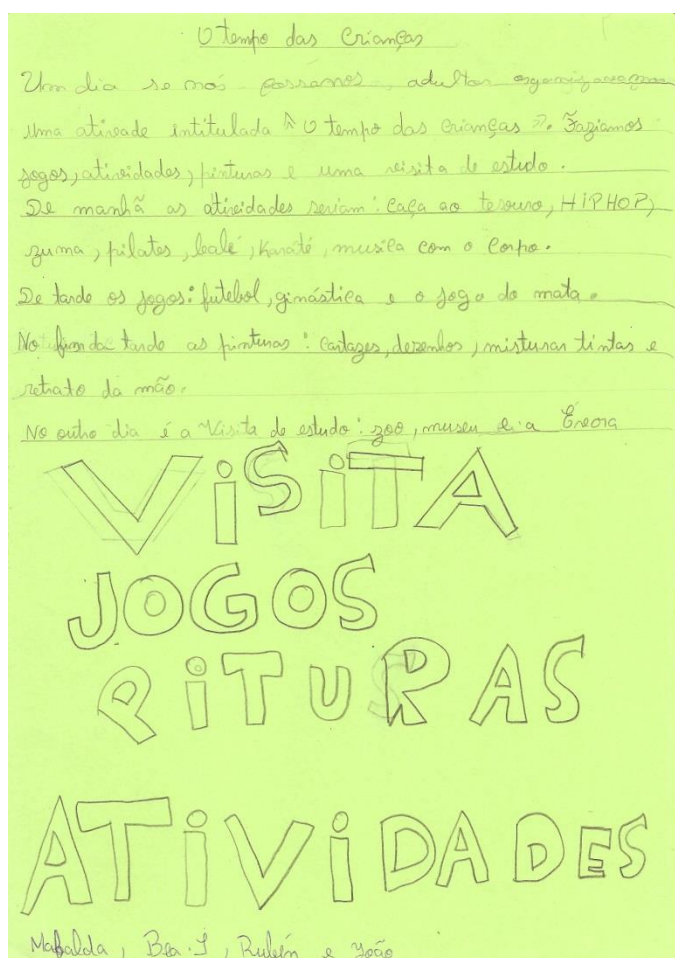 O tempo das Crianças
Um dia se nós fossemos adultos organizavamos
uma ativeade intitulada « O tempo das Crianças ». Faziamos
jogos, atividades, pinturas e uma visita de estudo.
De manhã as atividades seriam: Caça ao tesouro, HiPHOP,
zuma, pilates, balé, Karaté, musica com o Corpo.
De tarde os jogos: futebol, ginástica e o jogo do mata.
No fim da tarde as pinturas: Cartazes, dezenhos, misturar tintas e
retrato da mão.
No outro dia é a Visita de estudo: zoo, museu e a Évora
ViSiTA
JOGOS
PiTURAS
ATiViDADES
Mafalda, Bea. J, Rubén e João